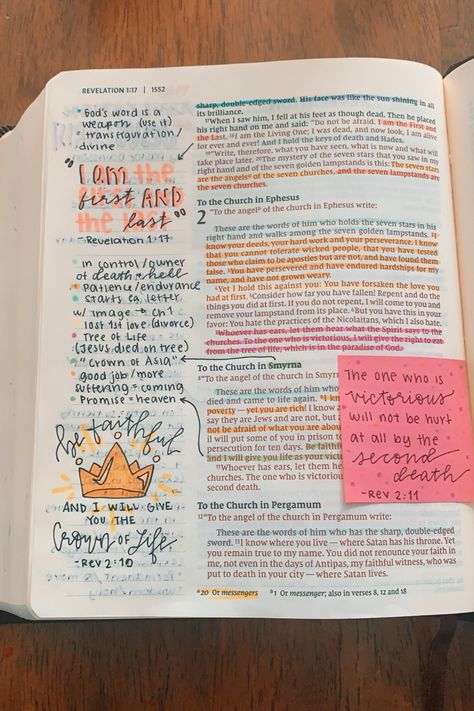 REVELATION 1:17 | 1552
• God's word is a
weapon (use it)
• transfiguration/
divine
"I am the
first AND
last"
- Revelation 1:17
• in control/owner
of death + hell
• Patience/endurance
• Starts eq. letter
w/ image → ch 1
• lost 1st love (divorce)
• Tree of Life
(Jesus died on tree)
• "Crown of ASIA"
• good job/more
suffering = coming
• Promise = heaven
be faithful
AND I WILL GIVE
YOU THE
Crown of Life
- Rev 2:10
sharp, double-edged sword. His face was like the sun shining in all
its brilliance.
17When I saw him, I fell at his feet as though dead. Then he placed
his right hand on me and said: "Do not be afraid. I am the First and
the Last. 18I am the Living One; I was dead, and now look, I am alive
for ever and ever! And I hold the keys of death and Hades.
19"Write, therefore, what you have seen, what is now and what will
take place later. 20The mystery of the seven stars that you saw in my
right hand and of the seven golden lampstands is this: The seven stars
are the angels of the seven churches, and the seven lampstands are
the seven churches.
To the Church in Ephesus
2 "To the angel of the church in Ephesus write:
These are the words of him who holds the seven stars in his
right hand and walks among the seven golden lampstands. 2I
know your deeds, your hard work and your perseverance. I know
that you cannot tolerate wicked people, that you have tested
those who claim to be apostles but are not, and have found them
false. 3You have persevered and have endured hardships for my
name, and have not grown weary.
4Yet I hold this against you: You have forsaken the love you
had at first. 5Consider how far you have fallen! Repent and do the
things you did at first. If you do not repent, I will come to you and
remove your lampstand from its place. 6But you have this in your
favour: You hate the practices of the Nicolaitans, which I also hate.
7Whoever has ears, let them hear what the Spirit says to the
churches. To the one who is victorious, I will give the right to eat
from the tree of life, which is in the paradise of God.
To the Church in Smyrna
8"To the angel of the church in Smyrna
These are the words of him who
died and came to life again. 9I know
poverty – yet you are rich! I know a
say they are Jews and are not, but
not be afraid of what you are about
il will put some of you in prison to
persecution for ten days. Be faithful
and I will give you life as your victor
11Whoever has ears, let them he
churches. The one who is victorious
second death.
The one who is
victorious
will not be hurt
at all by the
second
death
- REV 2:11
To the Church in Pergamum
12"To the angel of the church in Pergamum write:
These are the words of him who has the sharp, double-edged
sword. 13I know where you live – where Satan has his throne. Yet
you remain true to my name. You did not renounce your faith in
me, not even in the days of Antipas, my faithful witness, who was
put to death in your city – where Satan lives.
a20 Or messengers a1 Or messenger; also in verses 8, 12 and 18